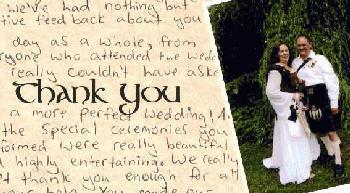 we've had nothing but
tive feedback about you
day as a whole, from
ryone who attended the wedd
really couldn't have aske
Thank You
a more perfect wedding!
the special ceremonies you
formed were really beautiful
d highly entertaining. We really
t thank you enough for all
your help. You made our